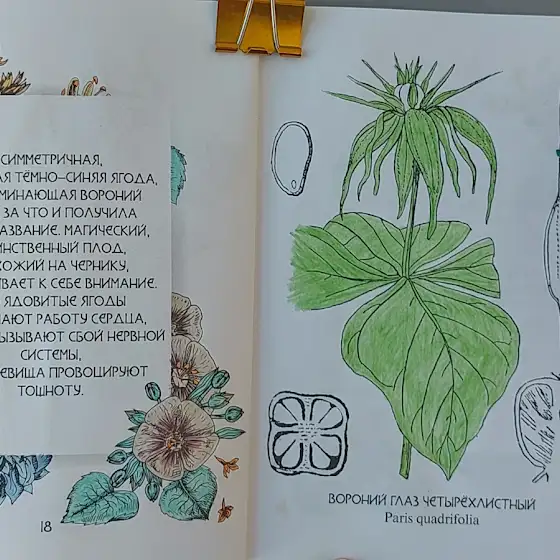 СИММЕТРИЧНАЯ,
АЯ ТЁМНО-СИНЯЯ ЯГОДА,
МИНАЮЩАЯ ВОРОНИЙ
ЗА ЧТО И ПОЛУЧИЛА
АЗВАНИЕ. МАГИЧЕСКИЙ,
ИНСТВЕННЫЙ ПЛОД,
ХОЖИЙ НА ЧЕРНИКУ,
ВАЕТ К СЕБЕ ВНИМАНИЕ.
ЯДОВИТЫЕ ЯГОДЫ
АЮТ РАБОТУ СЕРДЦА,
ЫЗЫВАЮТ СБОЙ НЕРВНОЙ
СИСТЕМЫ,
ЕВИЩА ПРОВОЦИРУЮТ
ТОШНОТУ.
18
ВОРОНИЙ ГЛАЗ ЧЕТЫРЁХЛИСТНЫЙ
Paris quadrifolia